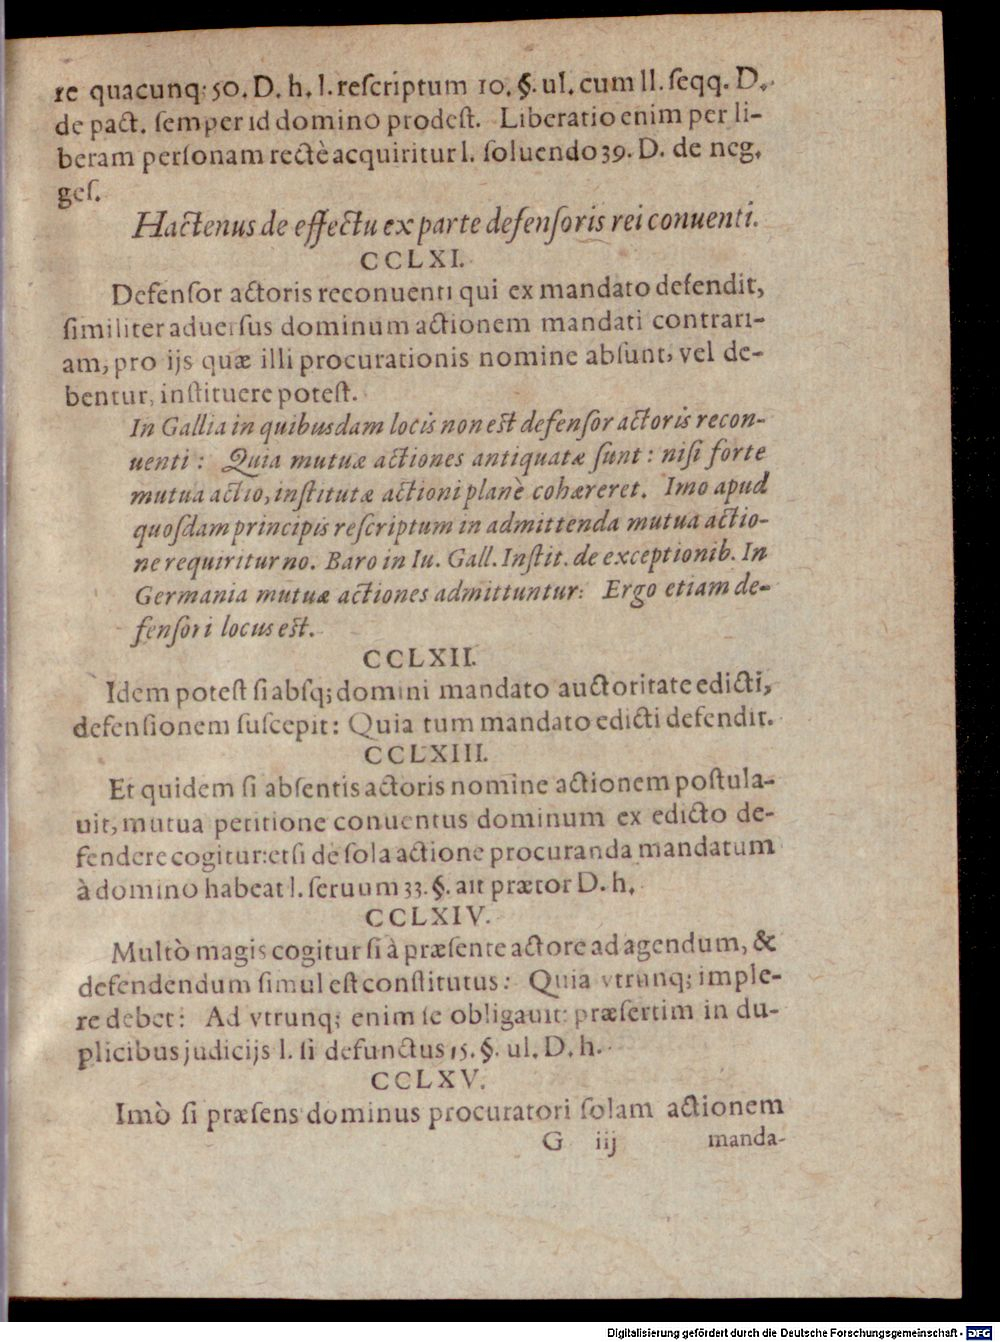 re quacunq; 50. D. h. l. reſcriptum 10. §. ul. cum ll. ſeqq. D.
de pact. ſemper id domino prodeſt. Liberatio enim per li-
beram perſonam rectè acquiritur l. ſoluendo 39. D. de neg.
geſ.
Hactenus de effectu ex parte defenſoris rei conuenti.
CCLXI.
Defenſor actoris reconuenti qui ex mandato defendit,
ſimiliter aduerſus dominum actionem mandati contrari-
am, pro ijs quæ illi procurationis nomine abſunt, vel de-
bentur, inſtituere poteſt.
In Gallia in quibusdam locis non est defenſor actoris recon-
uenti: Quia mutuæ actiones antiquatæ ſunt: niſi forte
mutua actio, inſtitutæ actioni planè cohæreret. Imo apud
quoſdam principis reſcriptum in admittenda mutua actio-
ne requiritur no. Baro in Iu. Gall. Inſtit. de exceptionib. In
Germania mutuæ actiones admittuntur: Ergo etiam de-
fenſori locus est.
CCLXII.
Idem poteſt ſi abſq; domini mandato auctoritate edicti,
defenſionem ſuſcepit: Quia tum mandato edicti defendit.
CCLXIII.
Et quidem ſi abſentis actoris nomine actionem poſtula-
uit, mutua petitione conuentus dominum ex edicto de-
fendere cogitur: etſi de ſola actione procuranda mandatum
à domino habeat l. ſeruum 33. §. ait prætor D. h.
CCLXIV.
Multò magis cogitur ſi à præſente actore ad agendum, &
defendendum ſimul eſt conſtitutus: Quia vtrunq; imple-
re debet: Ad vtrunq; enim ſe obligauit: præſertim in du-
plicibus judicijs l. ſi defunctus 15. §. ul. D. h.
CCLXV.
Imò ſi præſens dominus procuratori ſolam actionem
G iij manda-
Digitalisierung gefördert durch die Deutsche Forschungsgemeinschaft - DFG